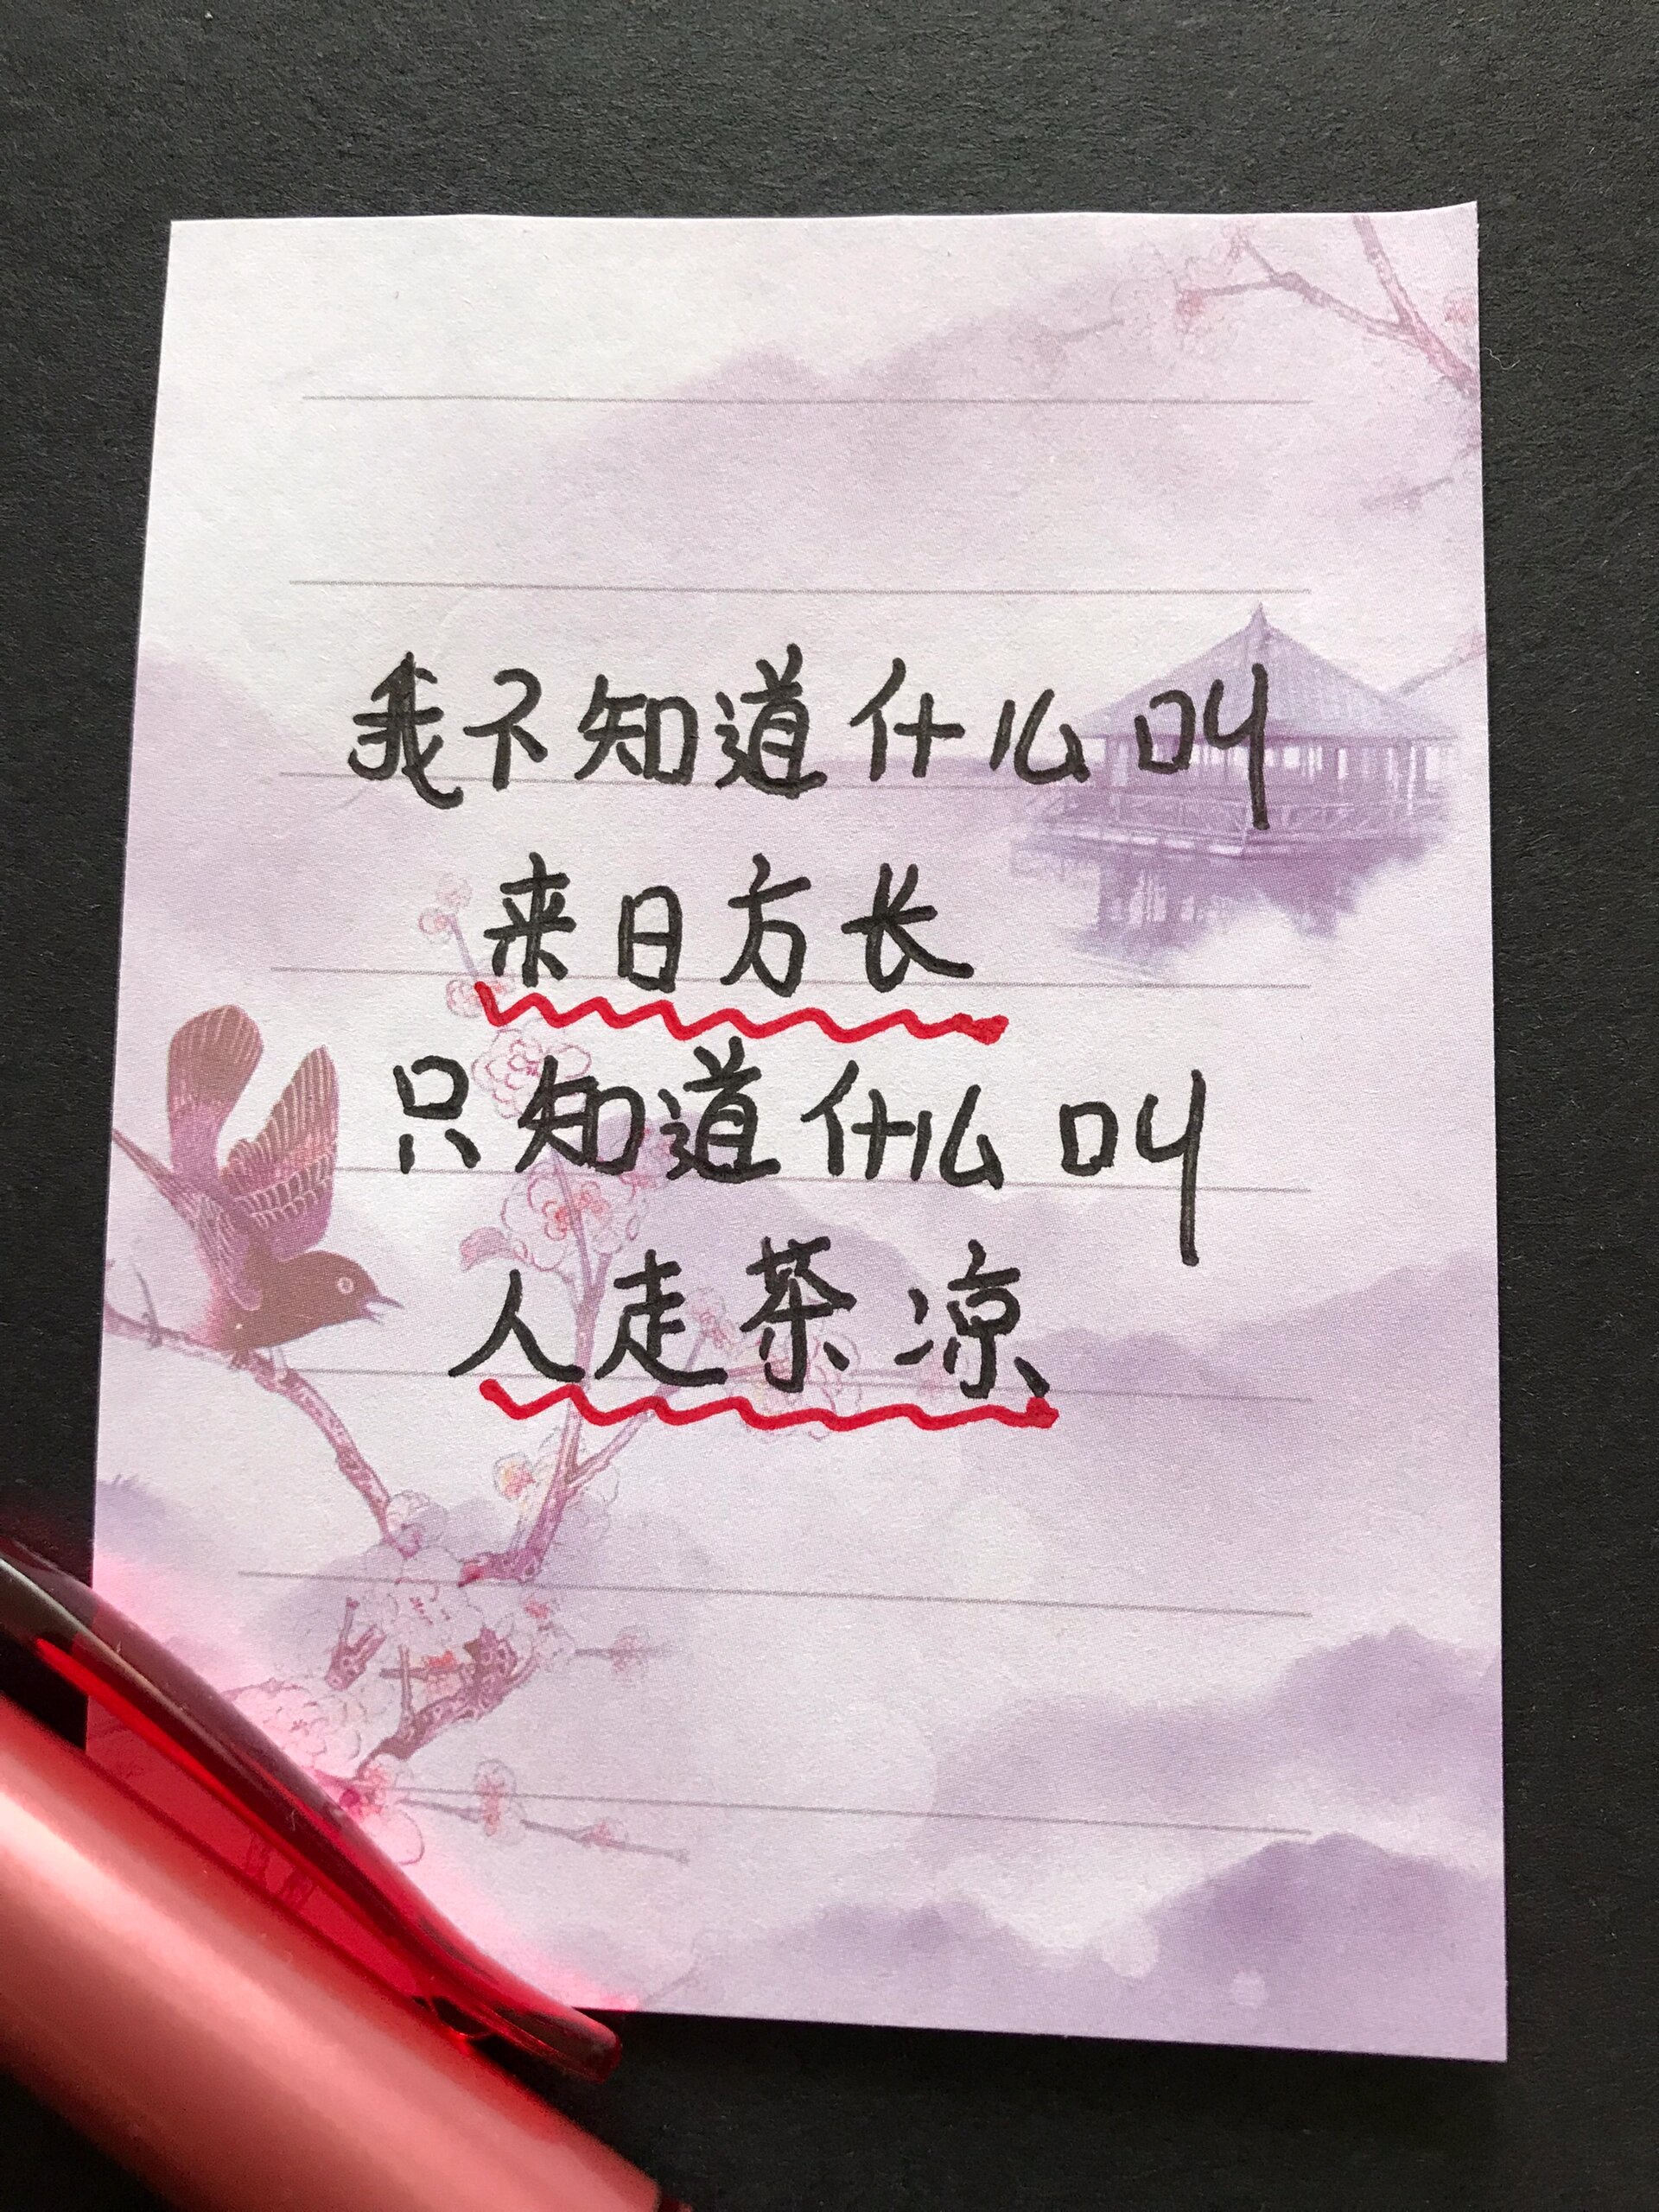 我不知道什么叫
来日方长
只知道什么叫
人走茶凉